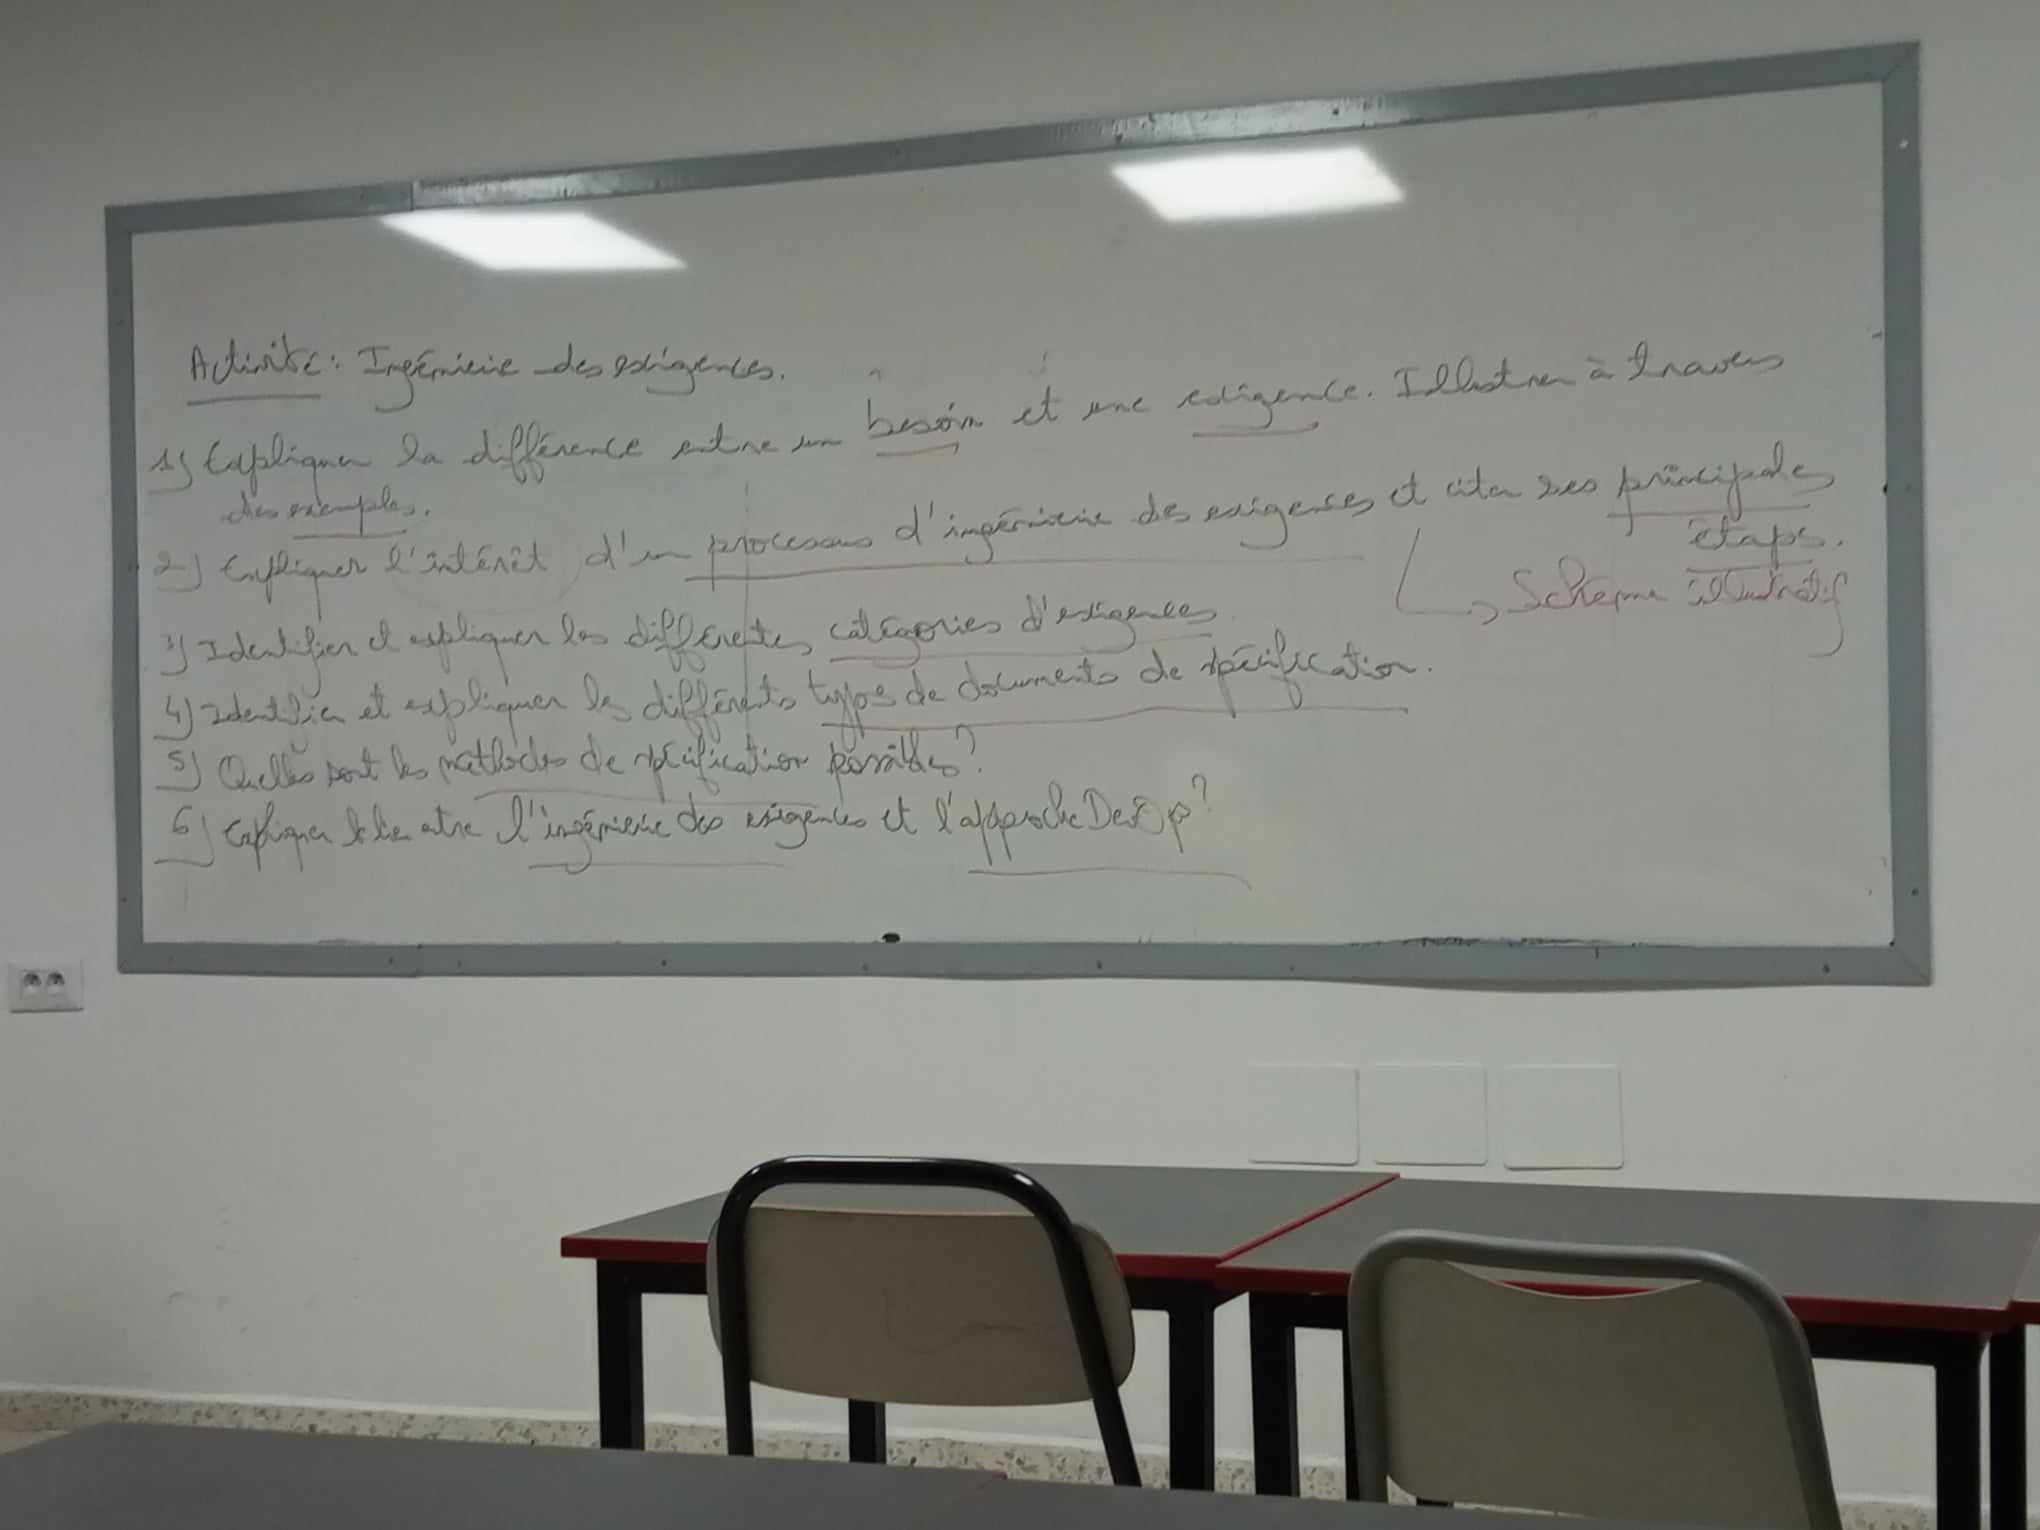 Activité : Ingénierie des exigences.
1) Expliquer la différence entre un besoin et une exigence. Illustrer à travers
des exemples.
2) Expliquer l'intérêt d'un processus d'ingénierie des exigences et citer ses principales
étapes.
↳ Schéma illustratif
3) Identifier et expliquer les différentes catégories d'exigences.
4) Identifier et expliquer les différents types de documents de spécification.
5) Quelles sont les méthodes de spécification possibles ?
6) Expliquer le lien entre l'ingénierie des exigences et l'approche DevOps ?